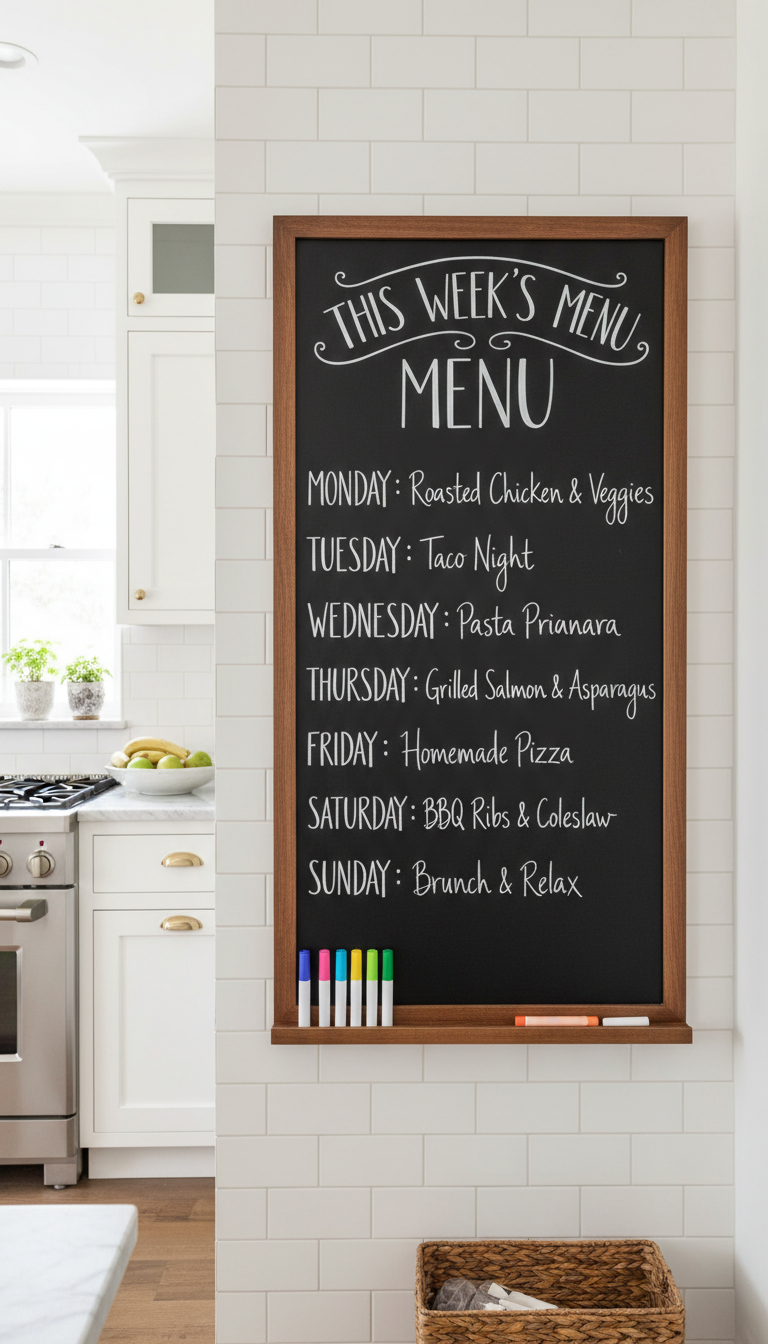 THIS WEEK'S MENU
MENU
MONDAY: Roasted Chicken & Veggies
TUESDAY: Taco Night
WEDNESDAY: Pasta Prianara
THURSDAY: Grilled Salmon & Asparagus
FRIDAY: Homemade Pizza
SATURDAY: BBQ Ribs & Coleslaw
SUNDAY: Brunch & Relax